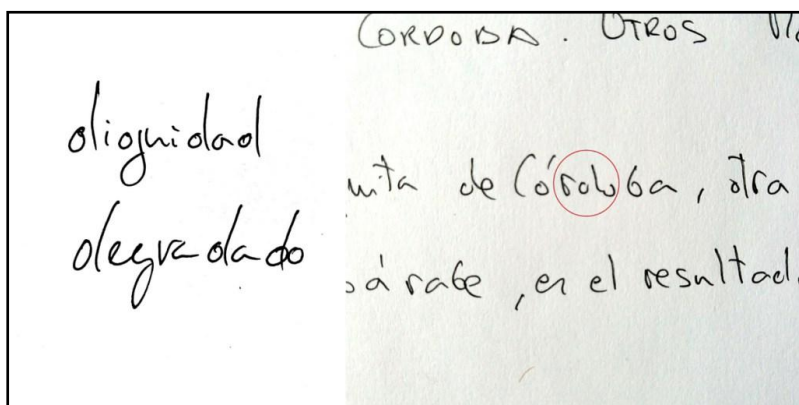 dignidad
degradado
CORDOBA. OTROS
de Córdoba, otra
árabe, en el resultad